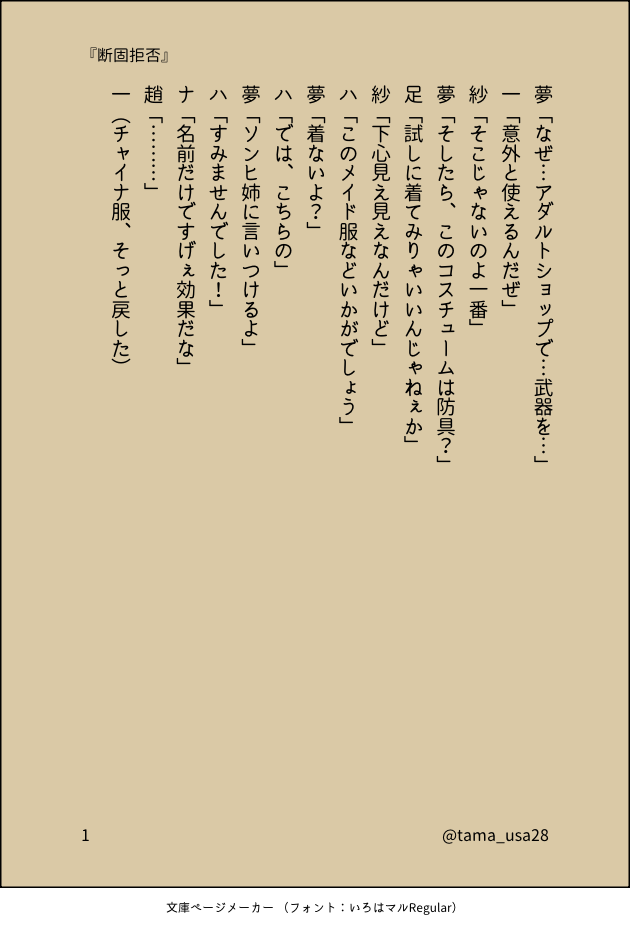 『断固拒否』
夢「なぜ…アダルトショップで…武器を…」
一「意外と使えるんだぜ」
紗「そこじゃないのよ一番」
夢「そしたら、このコスチュームは防具？」
足「試しに着てみりゃいいんじゃねぇか」
紗「下心見え見えなんだけど」
ハ「このメイド服などいかがでしょう」
夢「着ないよ？」
ハ「では、こちらの」
夢「ソンヒ姉に言いつけるよ」
ハ「すみませんでした！」
ナ「名前だけですげぇ効果だな」
趙「………」
一（チャイナ服、そっと戻した）
1
@tama_usa28
文庫ページメーカー （フォント：いろはマルRegular）